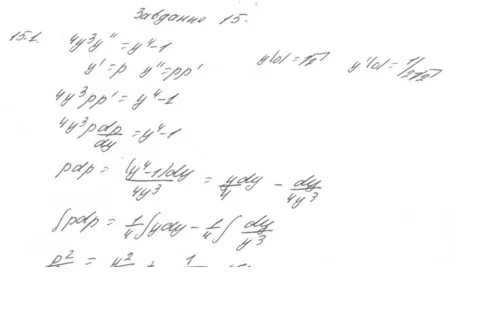 Завдання 15.
15.1. 4y³y'' = y⁴-1 y(0) = √2 y'(0) = 1/2√2
y' = p y'' = pp'
4y³pp' = y⁴-1
4y³p dp/dy = y⁴-1
pdp = (y⁴-1)dy/4y³ = ydy/4 - dy/4y³
∫pdp = 1/4∫ydy - 1/4∫dy/y³